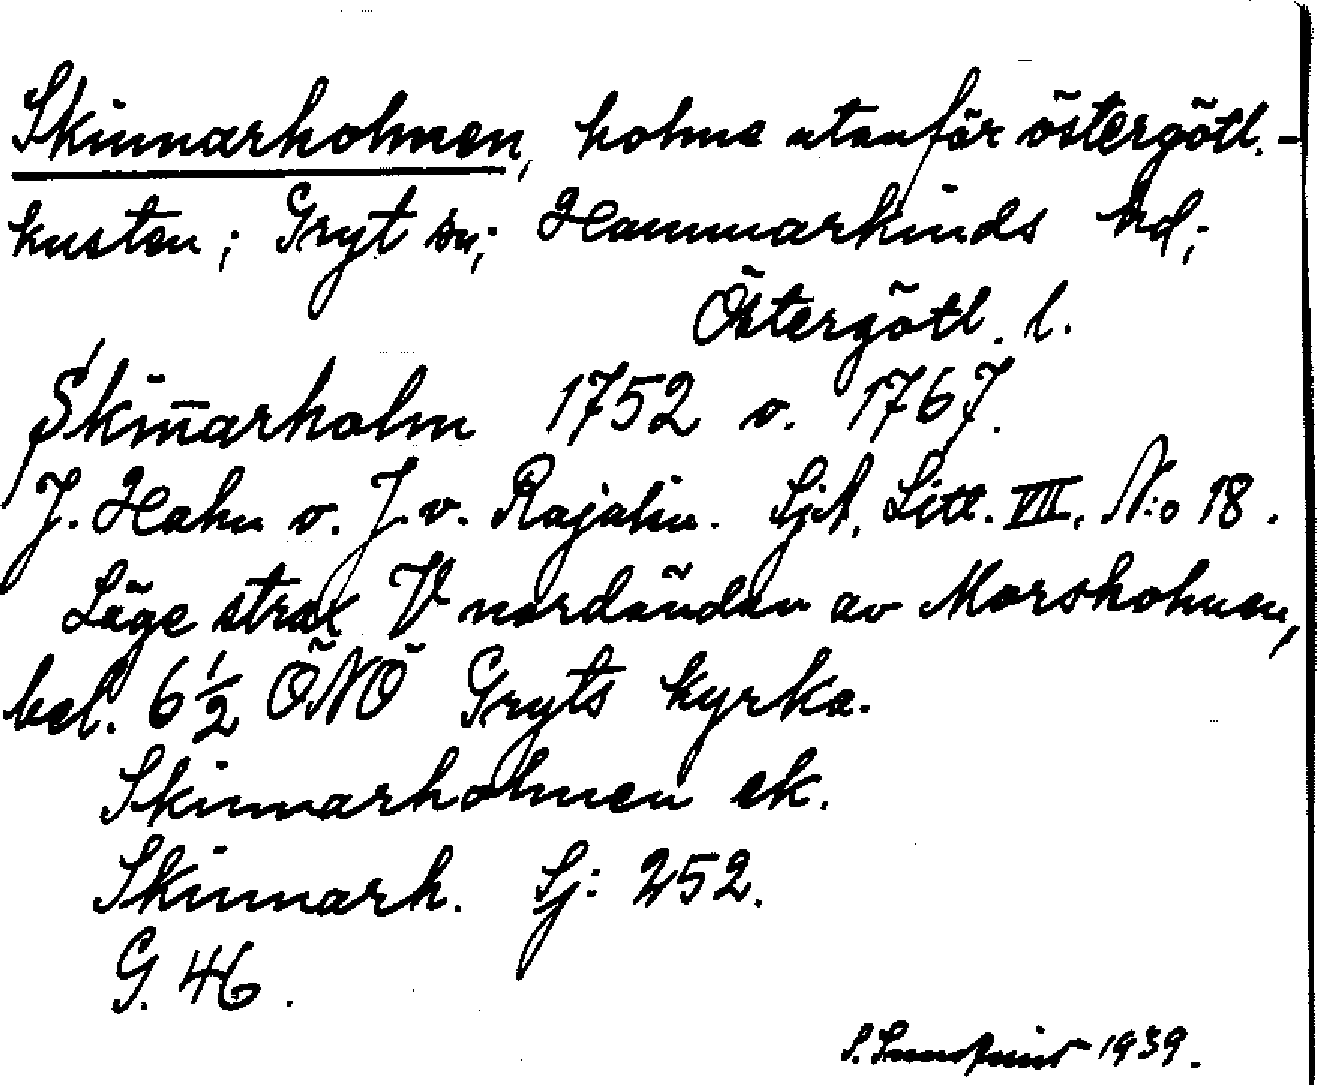 Skinnarholmen, holme utanför östergötl.-
kusten; Gryt sn; Hammarkinds hd;
Östergötl. l.
Skin̄arholm 1752 o. 1767.
J. Hahn o. J. v. Rajalin. Sjk. Litt. VIII. N:o 18.
Läge strax V nordänden av Morsholmen,
bel. 6 1/2 ÖNÖ Gryts kyrka.
Skinnarholmen ek.
Skinnarh. Sj: 252.
G. 46.
1939.